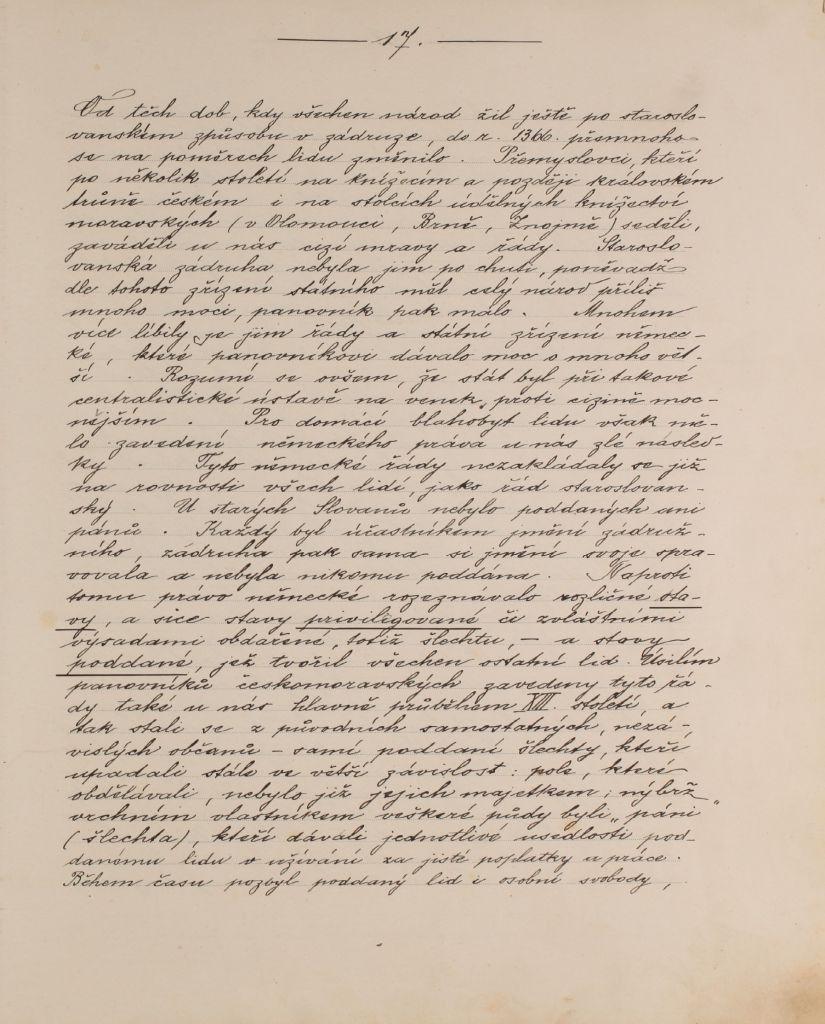 17.
Od těch dob, kdy všechen národ žil ještě po staroslo-
vanském způsobu v zádruze, do r. 1366. přemnoho
se na poměrech lidu změnilo. Přemyslovci, kteří
po několik století na knížecím a později královském
trůně českém i na stolcích údělných knížectví
moravských (v Olomouci, Brně, Znojmě) seděli,
zaváděli u nás cizí mravy a řády. Staroslo-
vanská zádruha nebyla jim po chuti, poněvadž
dle tohoto zřízení státního měl celý národ příliš
mnoho moci, panovník pak málo. Mnohem
více líbily se jim řády a státní zřízení němec-
ké, které panovníkovi dávalo moc o mnoho vět-
ší. Rozumí se ovšem, že stát byl při takové
centralistické ústavě na venek, proti cizině moc-
nějším. Pro domácí blahobyt lidu však mě-
lo zavedení německého práva u nás zlé násled-
ky. Tyto německé řády nezakládaly se již
na rovnosti všech lidí, jako řád staroslovan-
ský. U starých Slovanů nebylo poddaných ani
pánů. Každý byl účastníkem jmění zádruž-
ního, zádruha pak sama si jmění svoje spra-
vovala a nebyla nikomu poddána. Naproti
tomu právo německé rozeznávalo rozličné sta-
vy, a sice stavy priviligované či zvláštními
výsadami obdařené, totiž šlechtu, – a stavy
poddané, jež tvořil všechen ostatní lid. Úsilím
panovníků českomoravských zavedeny tyto řá-
dy také u nás hlavně průběhem XIII. století, a
tak stali se z původních samostatných, nezá-
vislých občanů – sami poddaní šlechty, kteří
upadali stále ve větší závislost: pole, které
obdělávali, nebylo již jejich majetkem; nýbrž
vrchním vlastníkem veškeré půdy byli „páni“
(šlechta), kteří dávali jednotlivé usedlosti pod-
danému lidu v užívání za jisté poplatky a práce.
Během času pozbyl poddaný lid i osobní svobody,